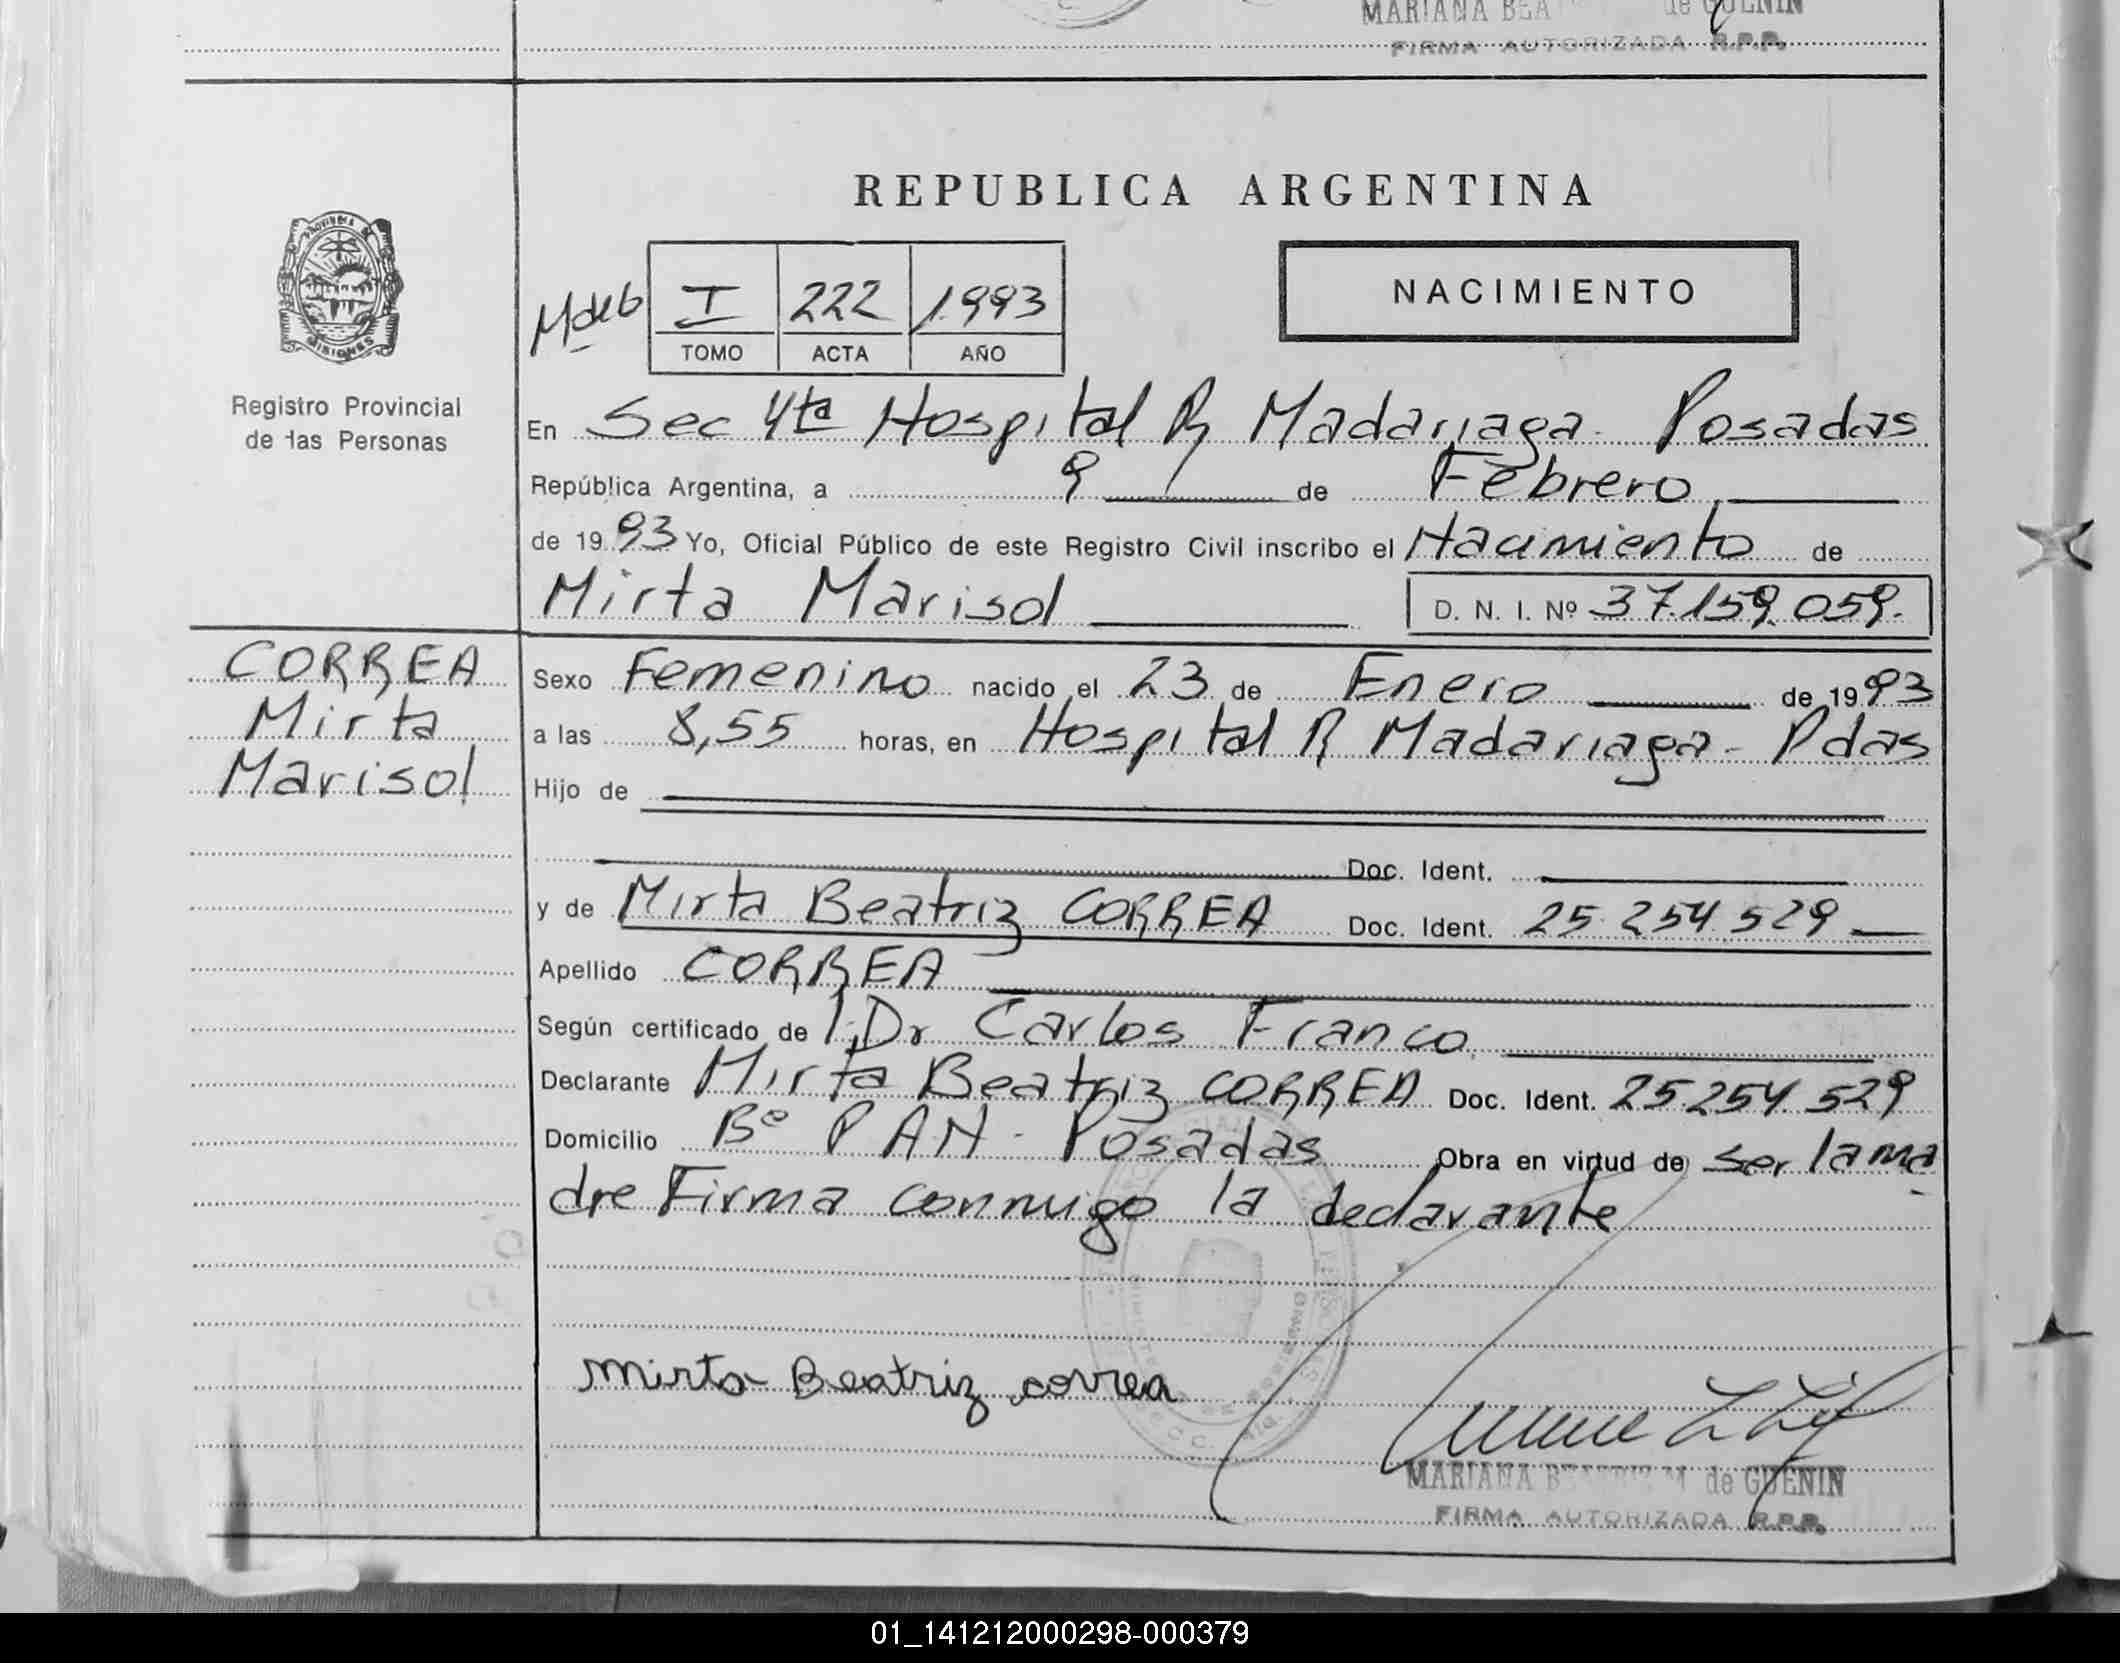 MARIANA BEA de GUENIN
FIRMA AUTORIZADA R.P.P.
REPUBLICA ARGENTINA
PROVINCIA DE
MISIONES
Registro Provincial
de las Personas
I 222 1993
TOMO ACTA AÑO
NACIMIENTO
En Sec 4ta Hospital R Madariaga - Posadas
República Argentina, a 9 de Febrero
de 1993 Yo, Oficial Público de este Registro Civil inscribo el Nacimiento de
Mirta Marisol D. N. I. Nº 37.159.059.
CORREA
Mirta
Marisol
Sexo Femenino nacido el 23 de Enero de 1993
a las 8,55 horas, en Hospital R Madariaga - Pdas
Hijo de
Doc. Ident.
y de Mirta Beatriz CORREA Doc. Ident. 25.254.529
Apellido CORREA
Según certificado de Dr Carlos Franco
Declarante Mirta Beatriz CORREA Doc. Ident. 25.254.529
Domicilio Bº PAN - Posadas Obra en virtud de ser la ma
dre Firma conmigo la declarante
Mirta Beatriz correa
MARIANA BEATRIZ M de GUENIN
FIRMA AUTORIZADA R.P.P.
01_141212000298-000379